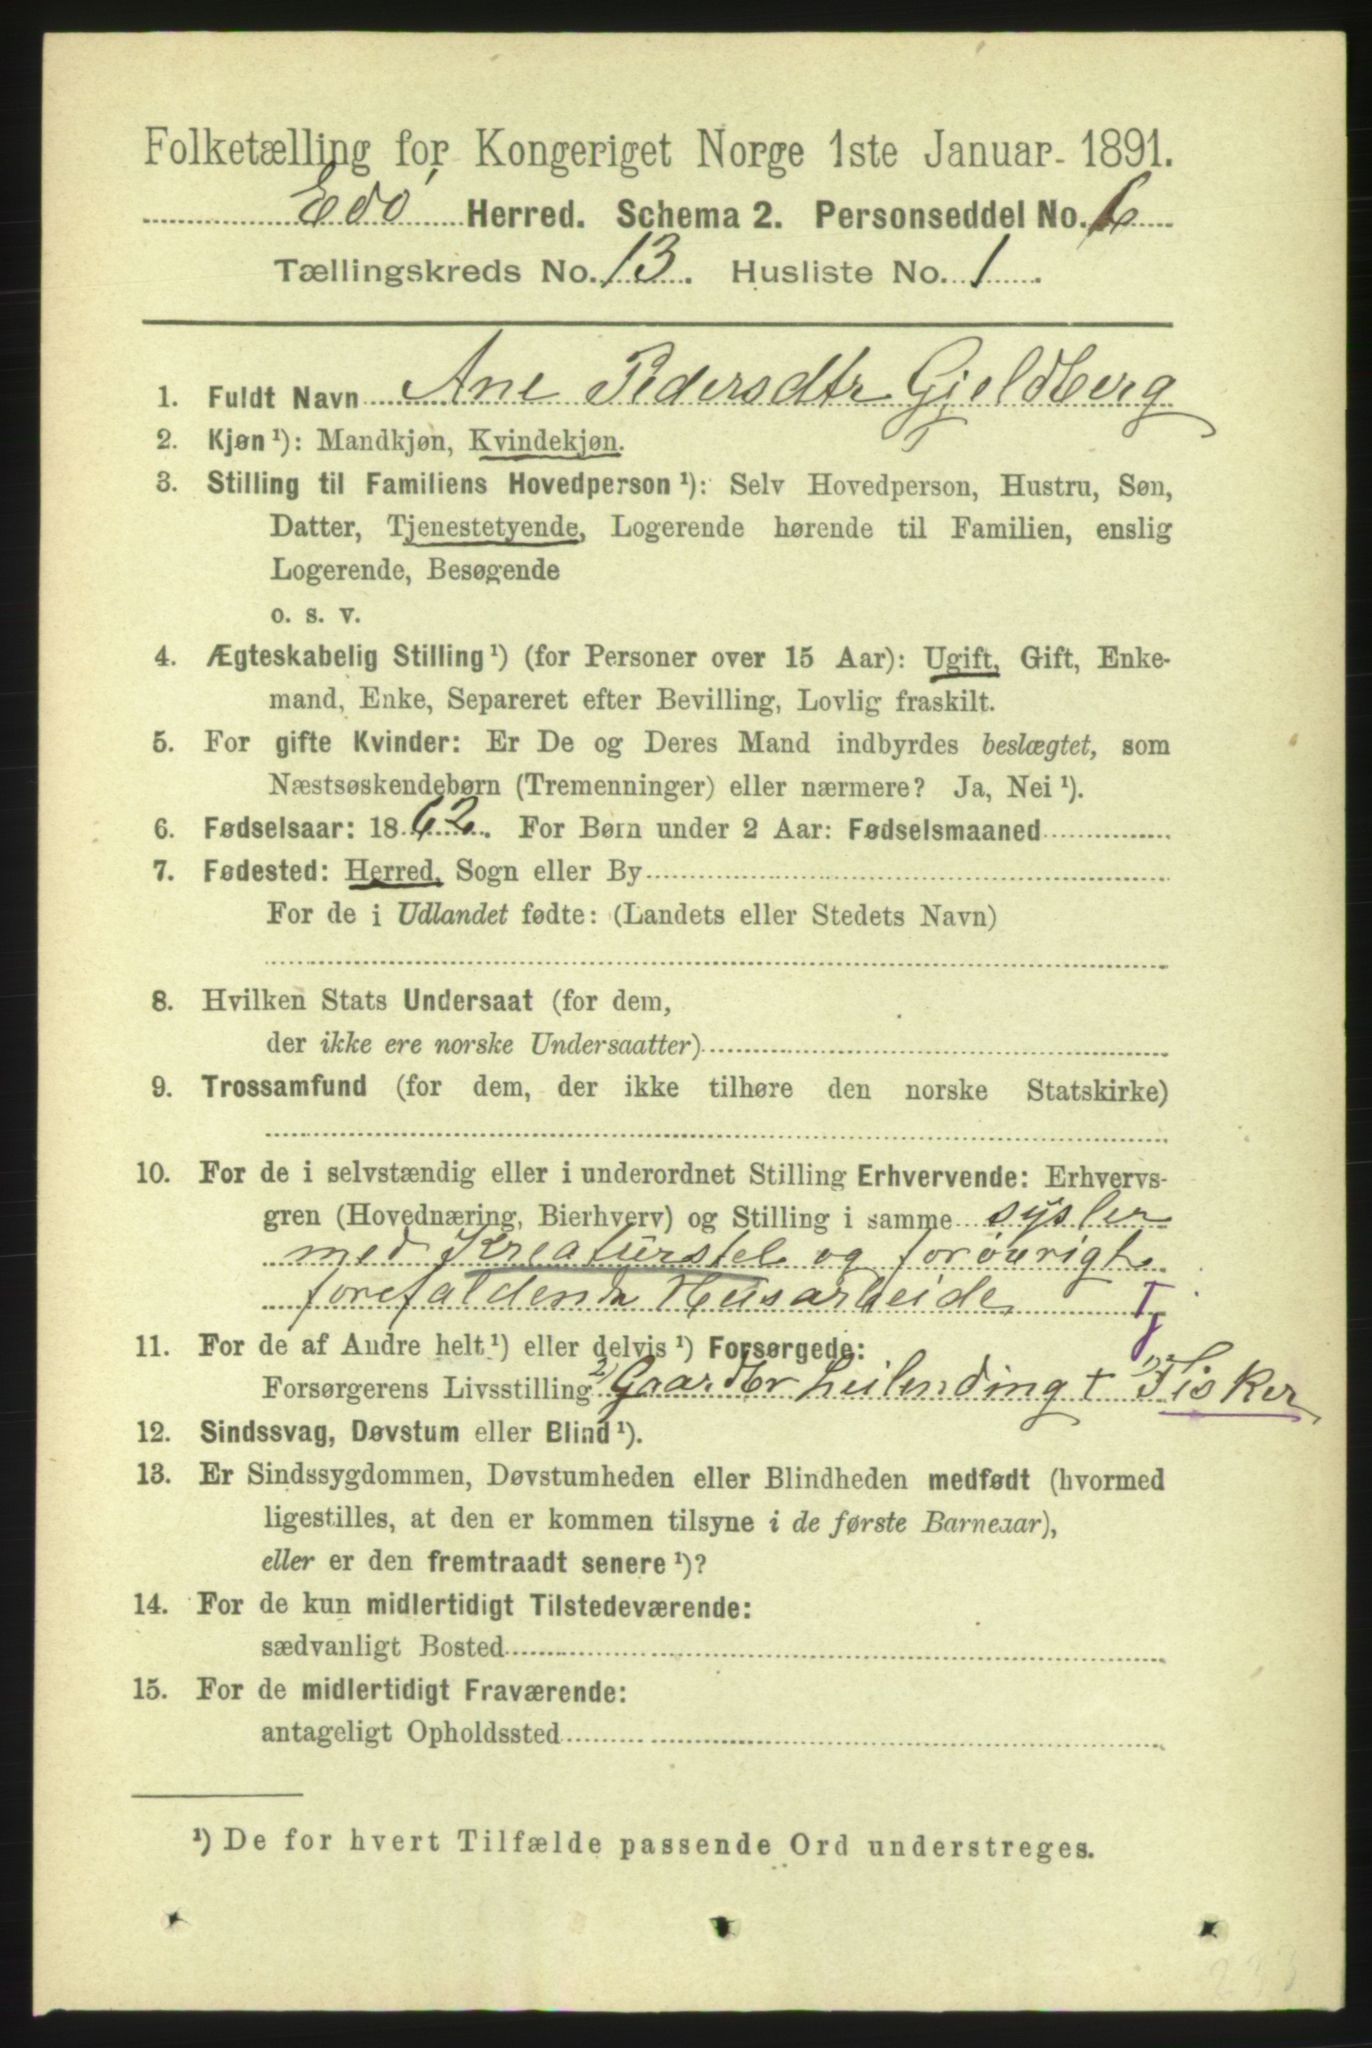 Folketælling for Kongeriget Norge 1ste Januar 1891.
Edö Herred. Schema 2. Personseddel No. 6
Tællingskreds No. 13. Husliste No. 1.
1. Fuldt Navn Ane Pedersdtr Gjeldberg
2. Kjøn¹): Mandkjøn, Kvindekjøn.
3. Stilling til Familiens Hovedperson¹): Selv Hovedperson, Hustru, Søn,
Datter, Tjenestetyende, Logerende hørende til Familien, enslig
Logerende, Besøgende
o. s. v.
4. Ægteskabelig Stilling¹) (for Personer over 15 Aar): Ugift, Gift, Enke-
mand, Enke, Separeret efter Bevilling, Lovlig fraskilt.
5. For gifte Kvinder: Er De og Deres Mand indbyrdes beslægtet, som
Næstsøskendebørn (Tremenninger) eller nærmere? Ja, Nei¹).
6. Fødselsaar: 1862. For Børn under 2 Aar: Fødselsmaaned
7. Fødested: Herred, Sogn eller By
For de i Udlandet fødte: (Landets eller Stedets Navn)
8. Hvilken Stats Undersaat (for dem,
der ikke ere norske Undersaatter)
9. Trossamfund (for dem, der ikke tilhøre den norske Statskirke)
10. For de i selvstændig eller i underordnet Stilling Erhvervende: Erhvervs-
gren (Hovednæring, Bierhverv) og Stilling i samme sysler
med Kreaturstel og forøvrigt
forefaldende Husarbeide Tj
11. For de af Andre helt¹) eller delvis¹) Forsørgede:
Forsørgerens Livsstilling 2) Gaardbr Leilending + 1) Fisker
12. Sindssvag, Døvstum eller Blind¹).
13. Er Sindssygdommen, Døvstumheden eller Blindheden medfødt (hvormed
ligestilles, at den er kommen tilsyne i de første Barneaar),
eller er den fremtraadt senere¹)?
14. For de kun midlertidigt Tilstedeværende:
sædvanligt Bosted
15. For de midlertidigt Fraværende:
antageligt Opholdssted
¹) De for hvert Tilfælde passende Ord understreges.